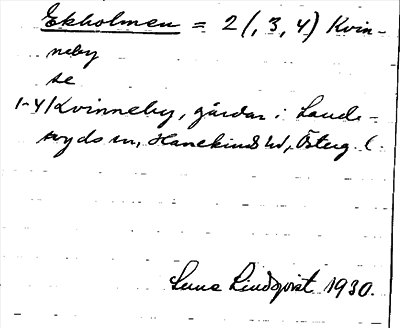 Ekholmen = 2(, 3, 4) Kvin-
neby
se
1-4/Kvinneby, gårdar i Lands-
ryds sn, Hanekinds hd, Österg. l.
Sune Lindqvist 1930.